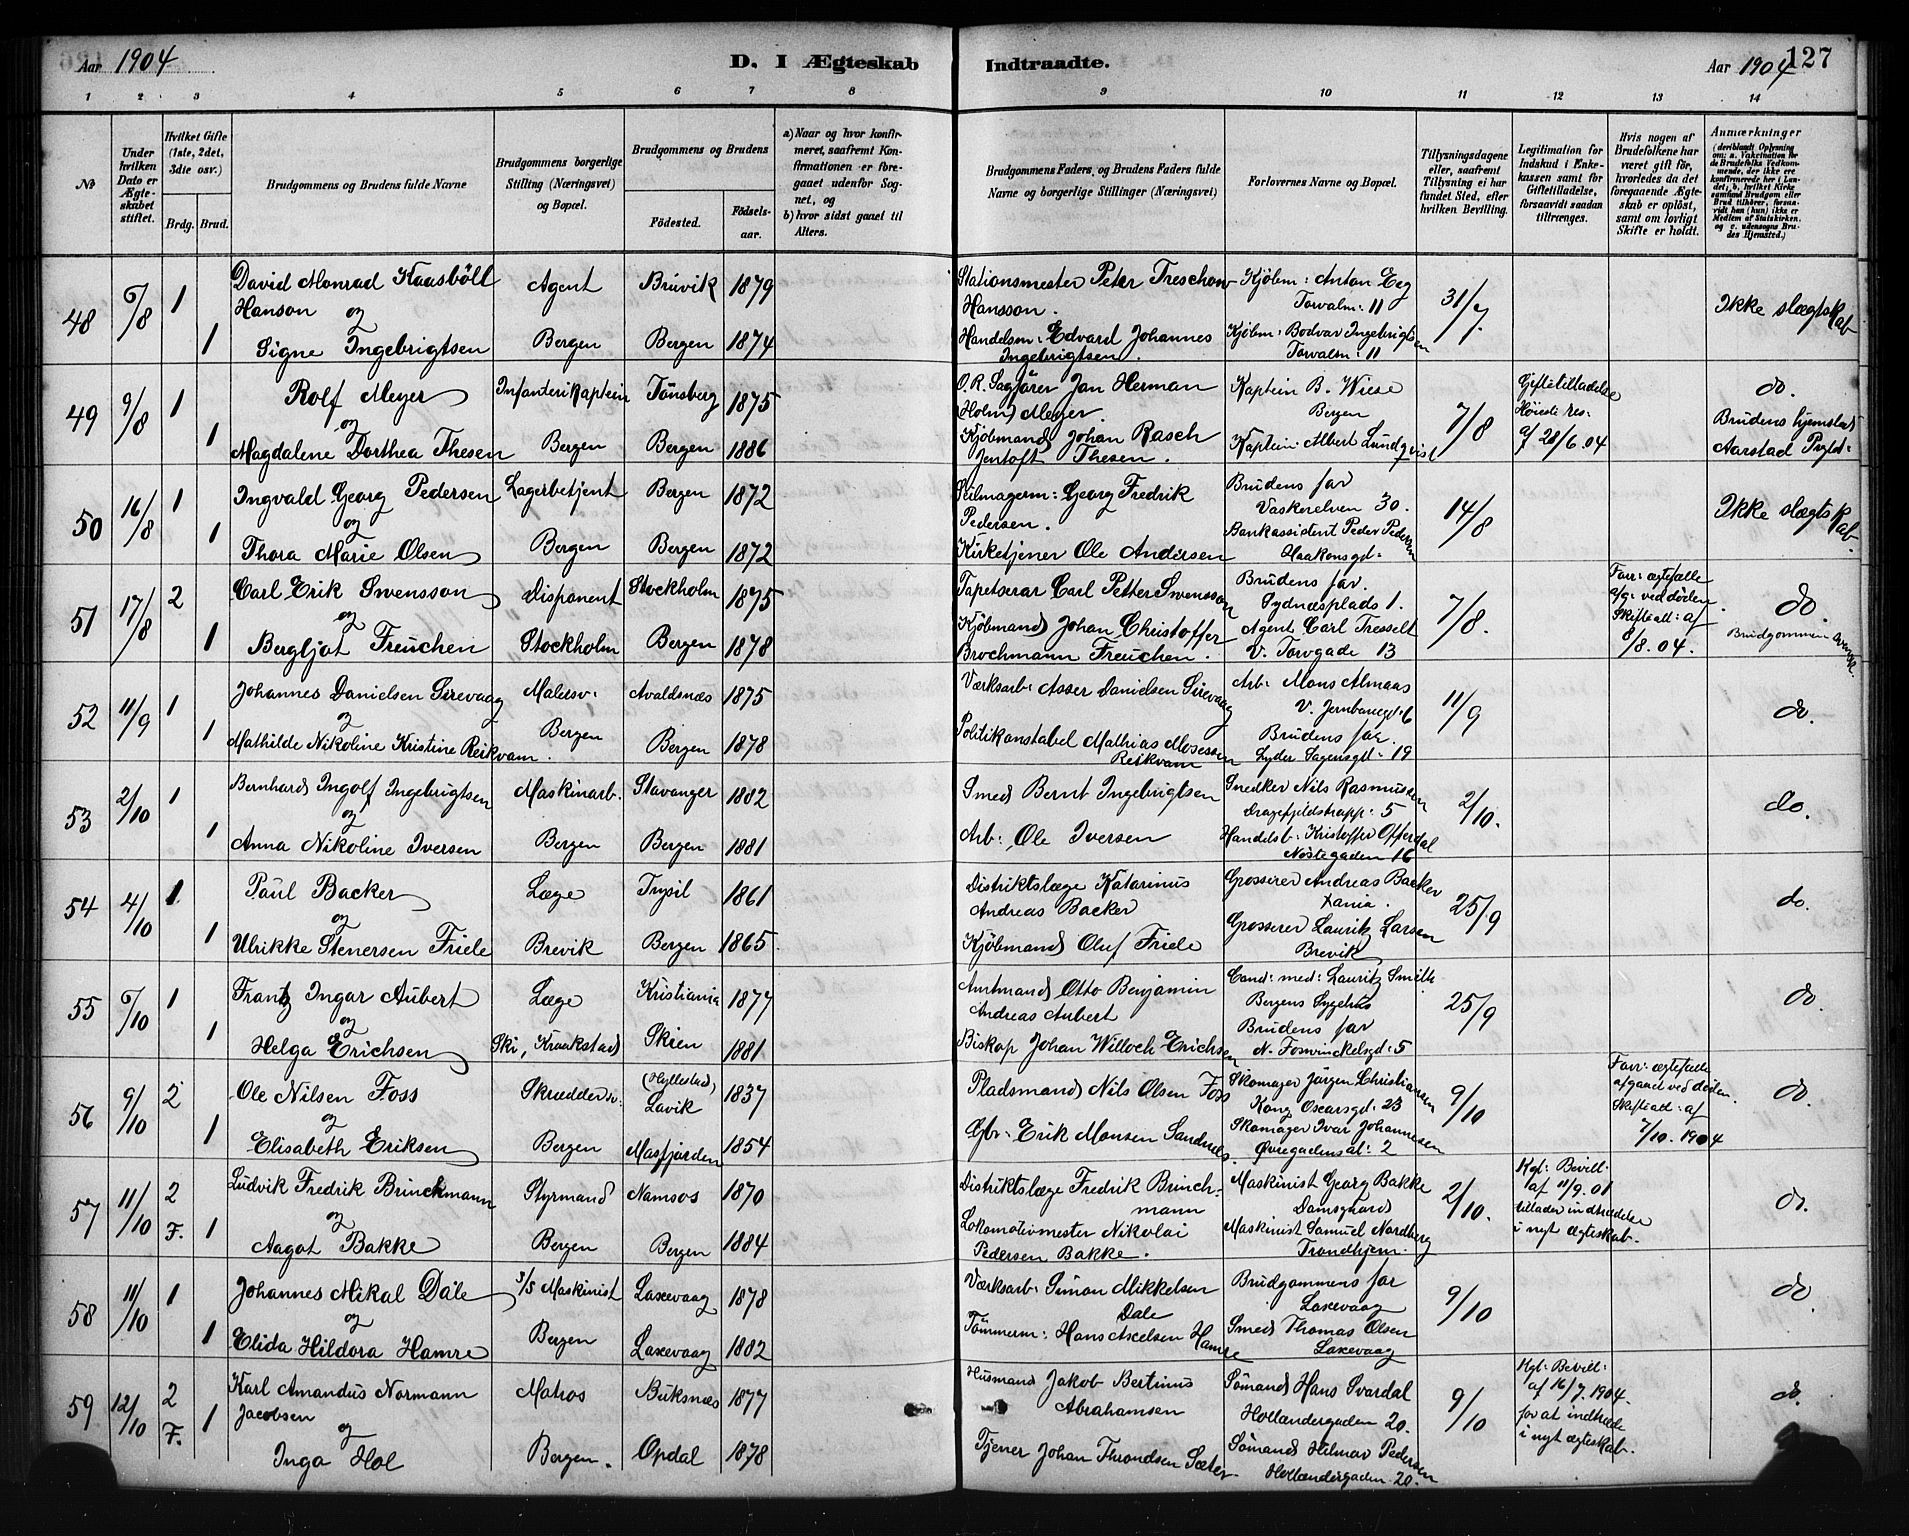 Aar 1904
D. I Ægteskab Indtraadte.
Aar 1904
127
1 2 3 4 5 6 7 8 9 10 11 12 13 14
No
Under hvilken Dato er Ægteskabet stiftet.
Hvilket Gifte (1ste, 2det, 3die osv.)
Brdg. Brud.
Brudgommens og Brudens fulde Navne
Brudgommens borgerlige Stilling (Næringsvei) og Bopæl.
Brudgommens og Brudens
Födested. Födselsaar.
a) Naar og hvor konfirmeret, saafremt Konfirmationen er foregaaet udenfor Sognet, og
b) hvor sidst gaaet til Alters.
Brudgommens Faders, og Brudens Faders fulde Navne og borgerlige Stillinger (Næringsvei)
Forlovernes Navne og Bopæl.
Tillysningsdagene eller, saafremt Tillysning ei har fundet Sted, efter hvilken Bevilling.
Legitimation for Indskud i Enkekassen samt for Giftetilladelse, forsaavidt saadan tiltrænges.
Hvis nogen af Brudefolkene har været gift för, hvorledes da det foregaaende Ægteskab er oplöst, samt om lovligt Skifte er holdt.
Anmærkninger (deriblandt Oplysning om: a. Vakcination for de Brudefolks Vedkommende, der ikke ere konfirmerede her i Landet; b. hvilket Kirkesamfund Brudgom eller Brud tilhörer, forsaavidt han (hun) ikke er Medlem af Statskirken, og c. udensogns Brudes Hjemsted.)
48 6/8 1 David Monrad Kaasböll Agent Bruvik 1879 Stationsmester Peter Treschow Kjöbm: Anton Eeg 31/7. Ikke slægtskab
Hanson og Hansson. Torvalm: 11
1 Signe Ingebrigtsen Bergen Bergen 1874 Handelsm: Edvard Johannes Kjöbm: Bodvar Ingebrigtsen
Ingebrigtsen. Torvalm: 11
49 9/8 1 Rolf Meyer Infanterikaptein Tönsberg 1875 O.R. Sagförer Jan Herman Kaptein B. Wiese 7/8 Giftetilladelse do.
og (Holm) Meyer. Bergen Höieste res: Brudens hjemsted
1 Magdalene Dorthea Thesen Bergen Bergen 1886 Kjöbmand Johan Rasch Kaptein Albert Lundqvist af 28/6.04 Aarstad Prgld:
Jentoft Thesen.
50 16/8 1 Ingvald Georg Pedersen Lagerbetjent Bergen 1872 Seilmagerm: Georg Fredrik Brudens far 14/8 Ikke slægtskab.
og Pedersen. Vaskerelven 30.
1 Thora Marie Olsen Bergen Bergen 1872 Kirketjener Ole Andersen Bankassistent Peder Pedersen
Haakonsgd:
51 17/8 2 Carl Erik Swensson Disponent Stockholm 1875 Tapetserar Carl Petter Swensson Brudens far 7/8. Forr: ægtefælle do.
og Sydnæsplads 1. afg: ved döden.
1 Bergljot Freuchen Stockholm Bergen 1878 Kjöbmand Johan Christoffer Agent Carl Tresselt Skifteatt: af Brudgommen svensk.
Brochmann Freuchen. V. Torvgade 13 8/8.04.
52 11/9 1 Johannes Danielsen Sirevaag Malersv: Avaldsnæs 1875 Værksarb: Asser Danielsen Sirevaag Arb: Mons Almaas 11/9 do.
og V. Jernbanegd: 6
1 Mathilde Nikoline Kristine Reikvam. Bergen Bergen 1878 Politikonstabel Mathias Mosessen Brudens far.
Reikvam Lyder Sagensgd: 19
53 2/10 1 Bernhard Ingolf Ingebrigtsen Maskinarb. Stavanger 1882 Smed Bernt Ingebrigtsen Snedker Nils Rasmussen 2/10. do.
og Dragefjeldstrapp: 5
1 Anna Nikoline Iversen Bergen Bergen 1881 Arb: Ole Iversen Handelsb: Kristoffer Offerdal
Nöstegaden 16
54 4/10 1 Paul Backer Læge Trysil 1861 Distriktslæge Katarinus Grosserer Andreas Backer 25/9 do.
og Andreas Backer Xania.
1 Ulrikke Stenersen Friele Brevik Bergen 1865 Kjöbmand Oluf Friele Grosserer Lauritz Larsen
Brevik
55 6/10 1 Frantz Ingar Aubert Læge Kristiania 1877 Amtmand Otto Benjamin Cand: med: Lauritz Smith 25/9 do.
og Andreas Aubert Bergens Sygehus
1 Helga Erichsen Ski, Kraakstad Skien 1881 Biskop Johan Willoch Erichsen Brudens far
N. Fosvinckelsgd: 5
56 9/10 2 Ole Nilsen Foss Skræddersv: (Hyllestad) Lavik 1837 Pladsmand Nils Olsen Foss Skomager Jörgen Christiansen 9/10 Forr: ægtefælle do.
og Kong Oscarsgd: 23 afgaaet ved döden.
1 Elisabeth Eriksen Bergen Masfjorden 1854 Gbr: Erik Monsen Sandnes. Skomager Ivar Johannesen Skifteatt: af
Övregadens al: 2 7/10.1904
57 11/10 2 F. Ludvik Fredrik Brinckmann Styrmand Namsos 1870 Distriktslæge Fredrik Brinchmann Maskinist Georg Bakke 2/10. Kgl: Bevill: do.
og Damsgaard af 11/9.01
1 Aagot Bakke Bergen Bergen 1884 Lokomotivmester Nikolai Maskinist Samuel Nordberg tillader indtrædelse
Pedersen Bakke. Trondhjem. i nyt ægteskab.
58 11/10 1 Johannes Mikal Dale Maskinist Laxevaag 1878 Værksarb: Simon Mikkelsen Brudgommens far 9/10 do.
og Dale Laxevaag
1 Elida Hildora Hamre Bergen Laxevaag 1882 Tömmerm: Hans Axelsen Hamre Smed Thomas Olsen
Laxevaag
59 12/10 2 F. Karl Amandus Normann Matros Buksnæs 1877 Husmand Jakob Bertinus Sömand Hans Svardal 9/10 Kgl: Bevill: do.
Jacobsen Abrahamsen Hollendergaden 20. af 16/7.1904.
og for at indtræde
1 Inga Hol Bergen. Opdal 1878 Tjener Johan Throndsen Sæter Sömand Hilmar Pedersen i nyt ægteskab.
Hollændergaden 20.